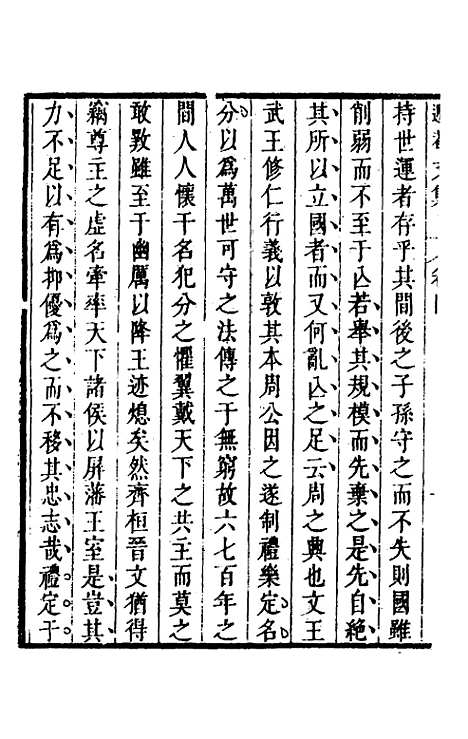 持世運者存乎其間後之子孫守之而不失則國雖
削弱而不至于亾若舉其規模而先棄之是先自絶
其所以立國者而又何亂亾之足云周之興也文王
武王修仁行義以敦其本周公因之遂制禮樂定名
分以爲萬世可守之法傳之于無窮故六七百年之
間人人懷干名犯分之懼翼戴天下之共主而莫之
敢斁雖至于幽厲以降王迹熄矣然齊桓晉文猶得
竊尊主之虛名牽率天下諸侯以屏藩王室是豈其
力不足以有爲抑優爲之而不移其忠志哉禮定于